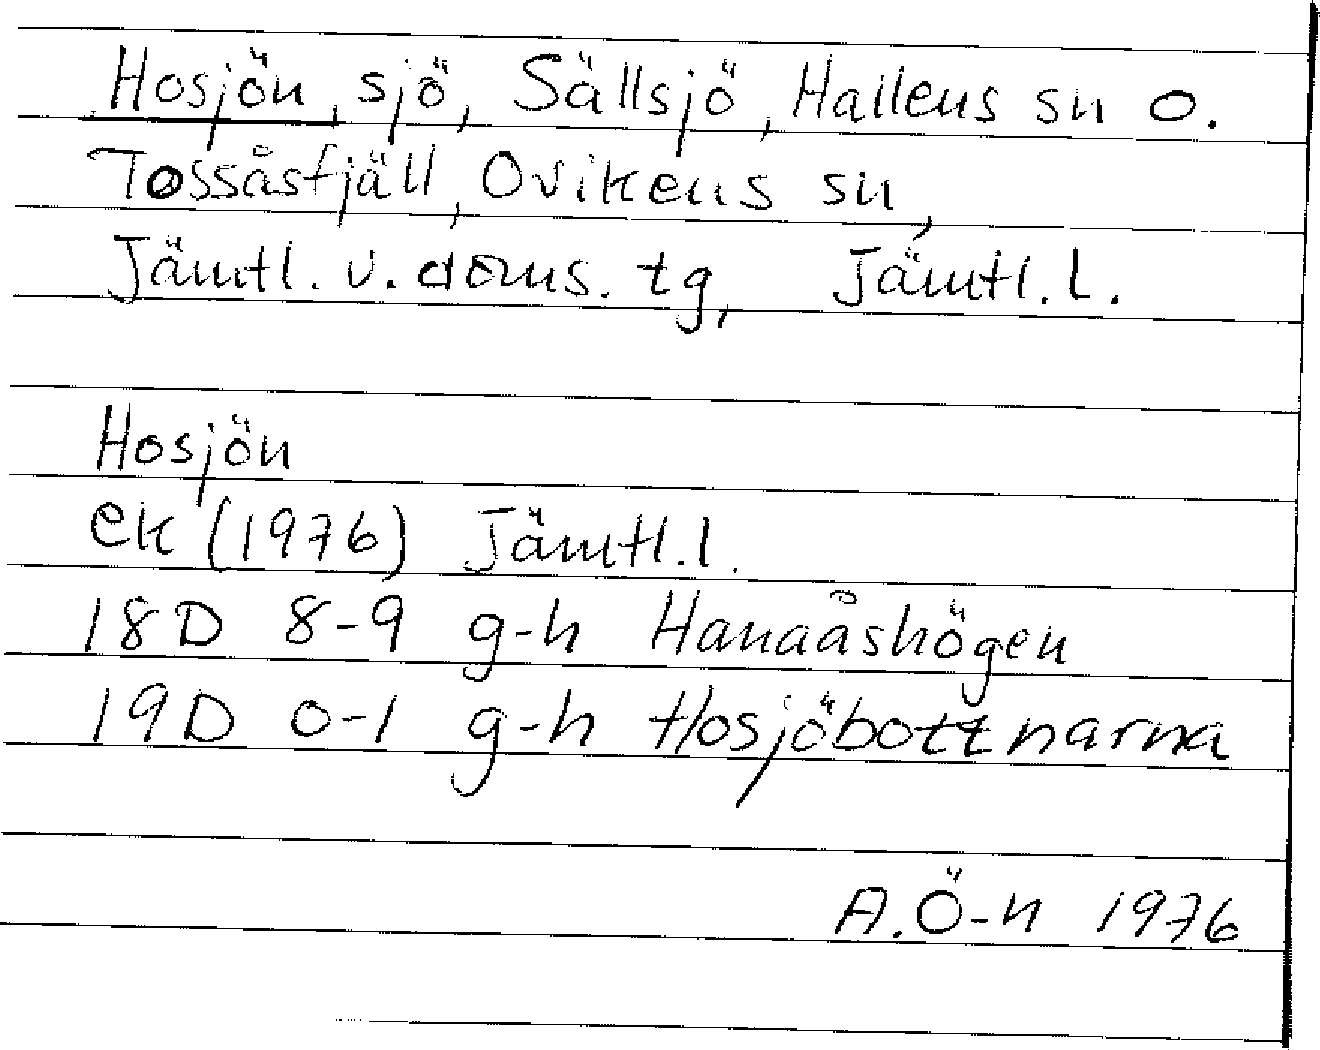 Hosjön, sjö, Sällsjö, Hallens sn o.
Tossåsfjäll, Ovikens sn,
Jämtl. v. doms. tg, Jämtl. l.
Hosjön
ek (1976) Jämtl. l.
18D 8-9 g-h Hanaåshögen
19D 0-1 g-h Hosjöbottnarna
A. Ö-n 1976